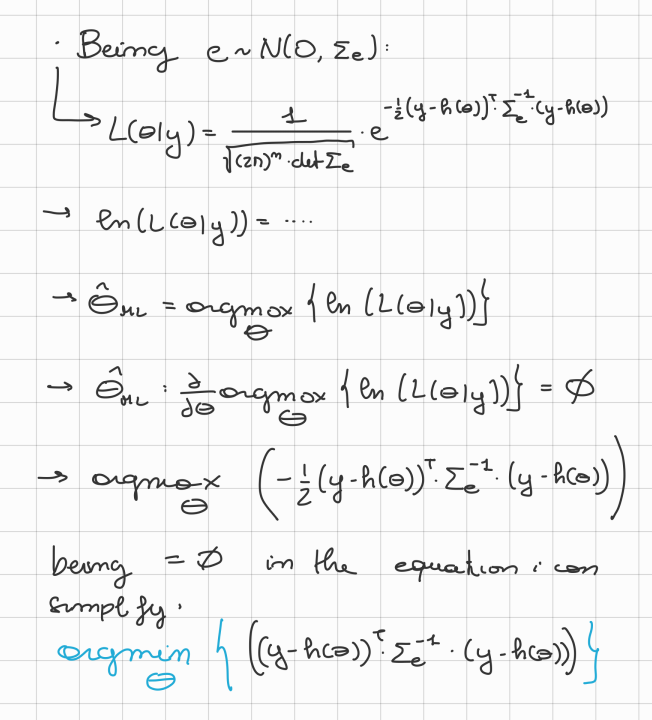 · Being e ~ N(0, Σₑ):
L(θ|y) = 1/√((2π)ⁿ · det Σₑ) · e^(-½(y-h(θ))ᵀ · Σₑ⁻¹ · (y-h(θ)))
→ ln(L(θ|y)) = ....
→ θ̂_ML = argmax_θ {ln (L(θ|y))}
→ θ̂_ML : ∂/∂θ argmax_θ {ln (L(θ|y))} = ∅
→ argmax_θ (-½ (y-h(θ))ᵀ · Σₑ⁻¹ · (y-h(θ)))
being = ∅ in the equation i can
simplify.
argmin_θ {((y-h(θ))ᵀ · Σₑ⁻¹ · (y-h(θ)))}